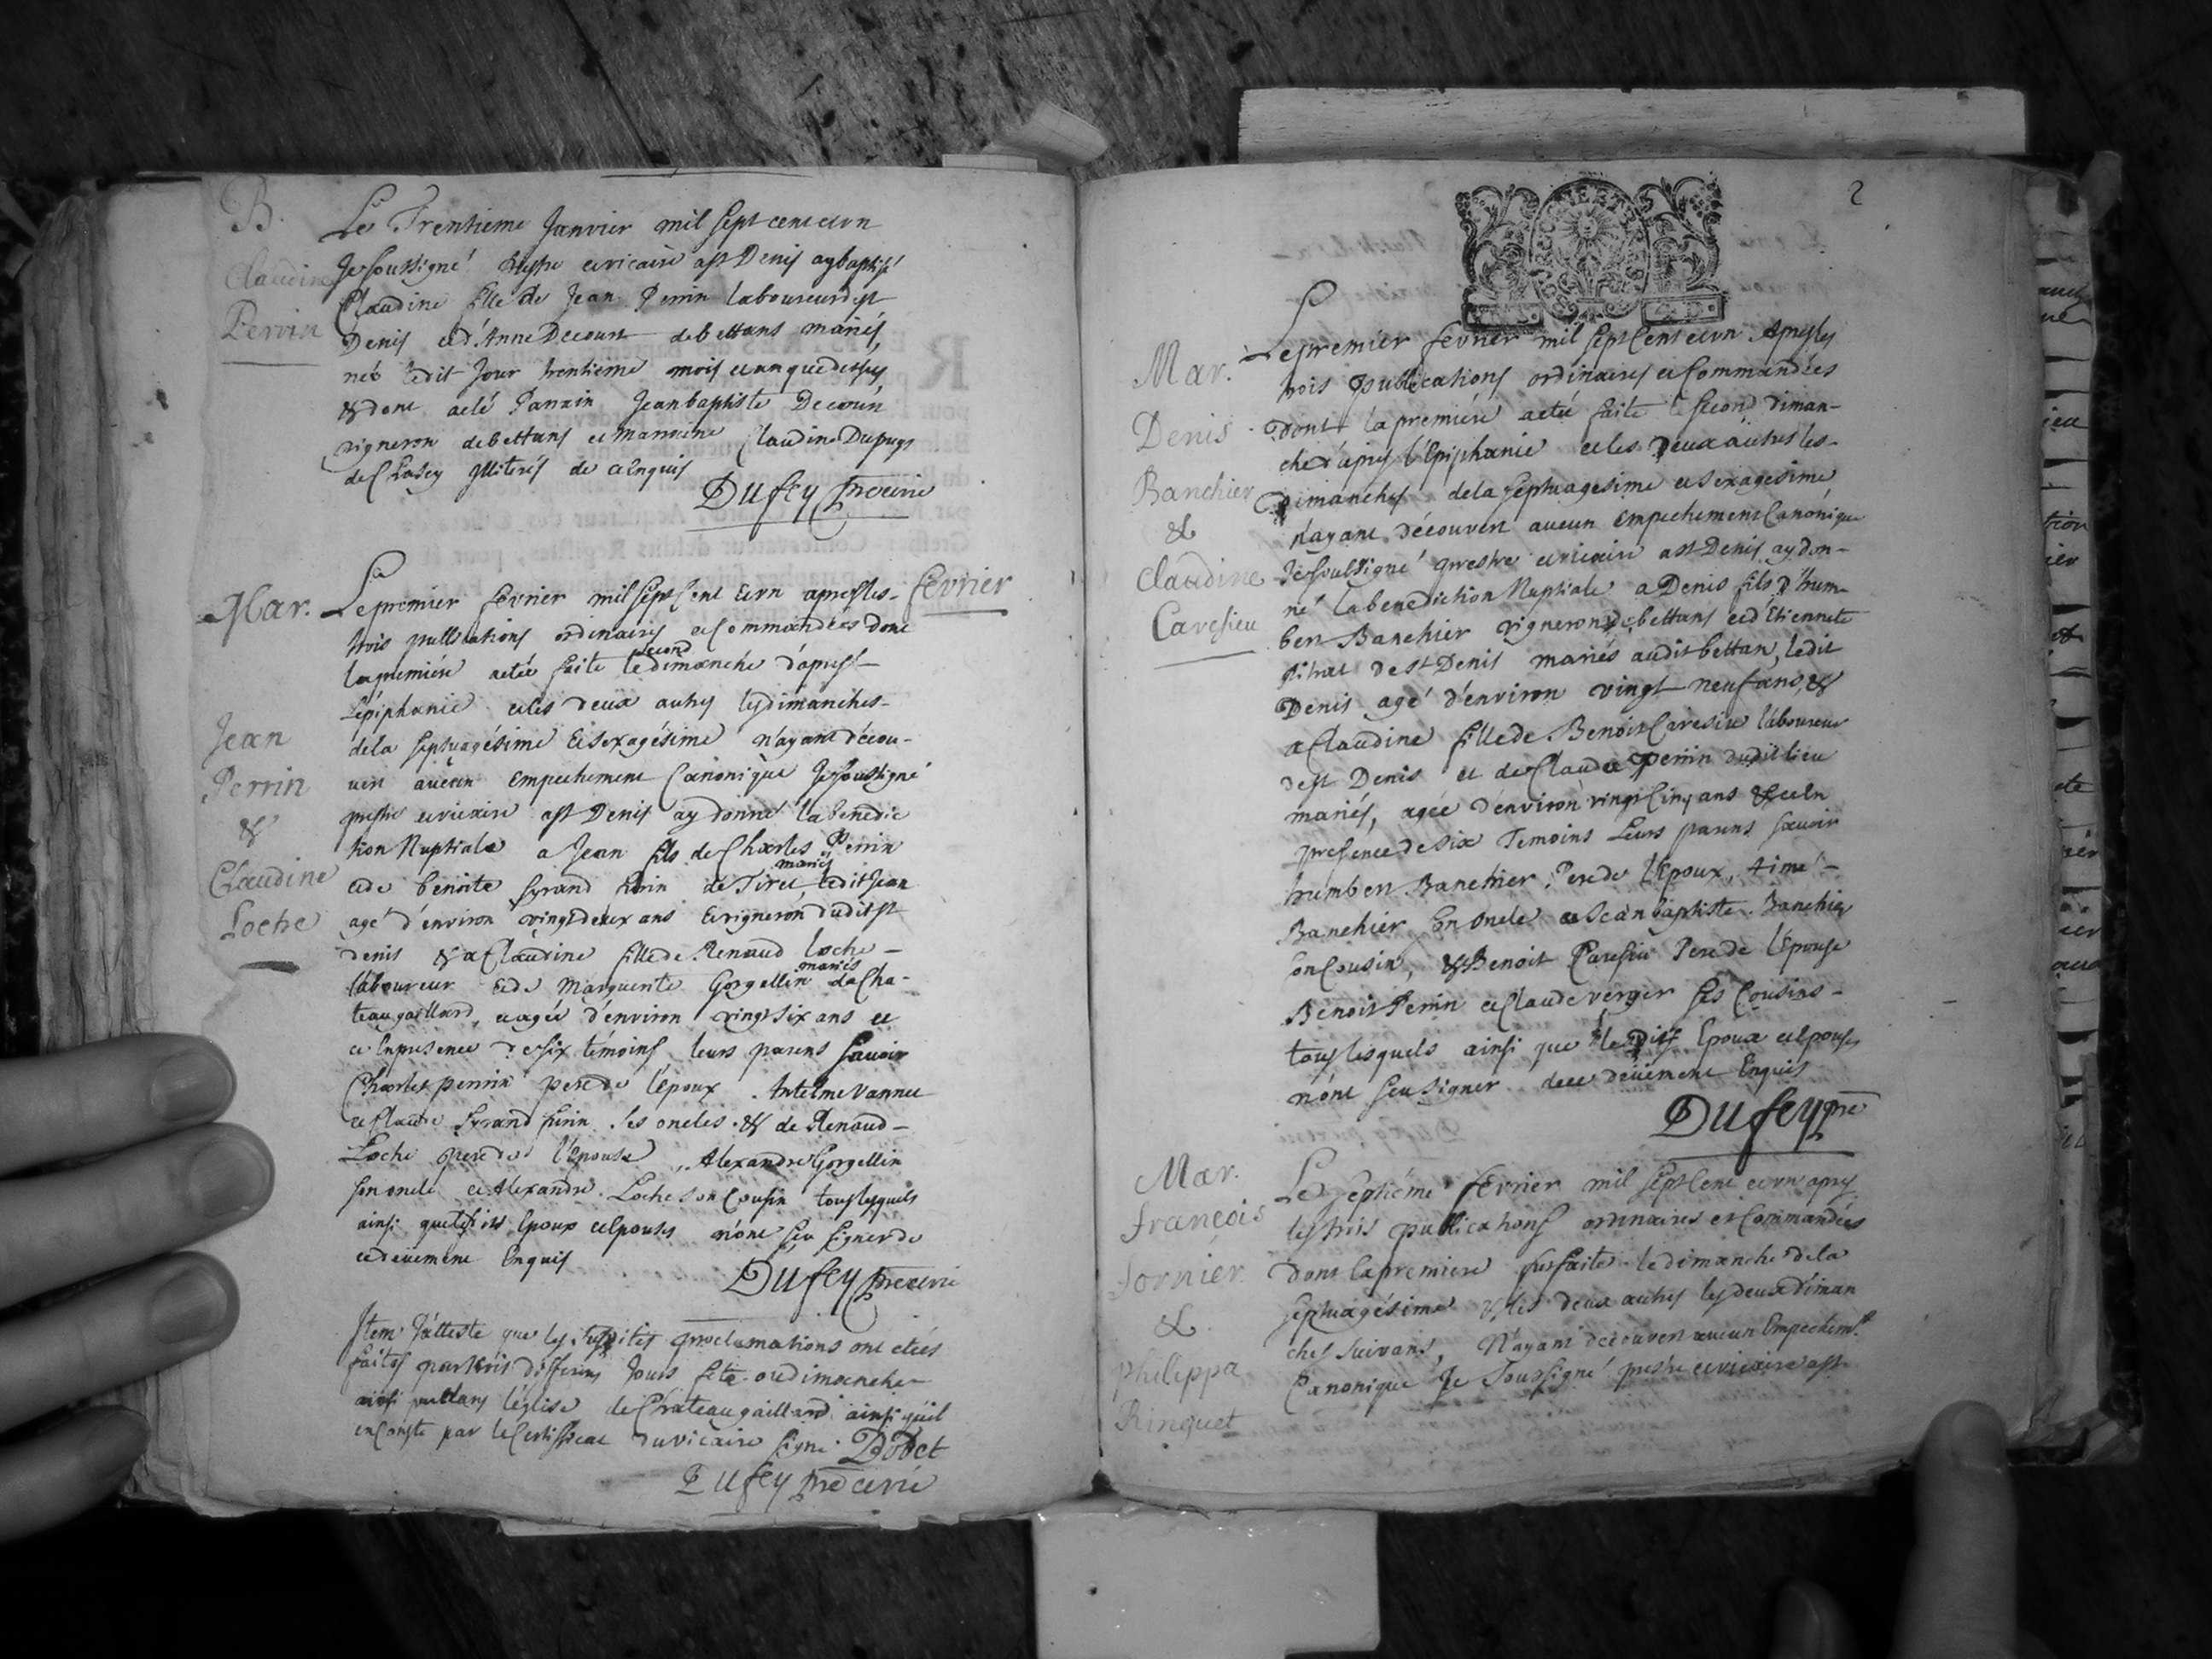 B.
Claudine
Perrin
Le Trentieme Janvier mil sept cent et un
Je soussigné prestre et vicaire a st Denis ay baptisé
Claudine fille de Jean Perrin laboureur de st
Denis et d'Anne Decourt de bettans mariés,
née ledit Jour trentieme mois et an que dessus
& dont a eté Parrain Jean baptiste Decourt
vigneron de bettans et marraine Claudine Dupuys
de Chasey illiterés de ce Enquis
Dufey pre et vic
Mar.
Jean
Perrin
&
Claudine
Loche
fevrier
Le premier fevrier mil sept Cent Et un apres les
trois publications ordinaires et Commandées dont
la premiére a etée faite le second dimanche d'apres
L'épiphanie et les deux autres les dimanches
de la septuagésime Et sexagésime n'ayant décou-
vert aucun Empechement Canonique Je soussigné
prestre et vicaire a st Denis ay donné la benedic
tion Nuptiale a Jean fils de Charles Perrin
et de benoite Syrand de Tiret mariés ledit Jean
agé d'environ vingt deux ans Et vigneron dudit st
denis & a Claudine fille de Renaud Loche
laboureur Et de Marguerite Gorgellin mariés a Cha-
teaugaillard, et agée d'environ vingt six ans et
et En presence de six témoins leurs parens savoir
Charles perrin pere de l'époux. Antelme Vannet
et Claude Syrand ses oncles & de Renaud
Loche pere de l'Epouse, Alexandre Gorgellin
son oncle et Alexandre Loche son Cousin tous lesquels
ainsi que lesdits Epoux et Epouses n'ont seu signer de
ce deüement Enquis
Dufey pre et vic
Item J'atteste que les susdites proclamations ont etées
faites par trois differens Jours fete ou dimanche
ainsi que dans l'église de Chateaugaillard ainsi qu'il
en Conste par le Certificat du vicaire signé Dodet
Dufey pre et vic
2
Mar.
Denis
Banchier
&
Claudine
Caresieu
Le premier fevrier mil sept Cent et un Apres les
trois publications ordinaires et Commandées
Dont la premiére a eté faite le second diman-
che d'apres l'Epiphanie et les Deux autres les
Dimanches de la septuagesime et sexagesime
n'ayant découvert aucun Empechement Canonique
Je soussigné prestre et vicaire a st Denis ay don-
né la benediction Nuptiale a Denis fils d'hum
bert Banchier vigneron de bettans et d'Etiennete
de st Denis mariés audit bettan, ledit
Denis agé d'environ vingt neuf ans, &
a Claudine fille de Benoit Caresieu laboureur
de st Denis et de Claude Perrin dudit lieu
mariés, agée d'environ vingt Cinq ans & et En
presence de six Temoins Leurs parens savoir
humbert Banchier Pere de l'Epoux, Aimé
Banchier son oncle et Jean baptiste Banchier
son Cousin, & Benoit Caresieu Pere de l'Epouse
Benoit Perrin et Claude verger ses Cousins
tous lesquels ainsi que lesdits Epoux et Epouses
n'ont seu signer de ce deüement Enquis
Dufey pre
Mar.
françois
fornier
&
Philippa
Rinquet
Le septiéme fevrier mil sept Cent et un apres
les trois publications ordinaires et Commandées
Dont la premiere fut faite le dimanche de la
septuagésime & les deux autres les deux diman
ches suivans, N'ayant découvert aucun Empechemt
Canonique Je soussigné prestre et vicaire a st